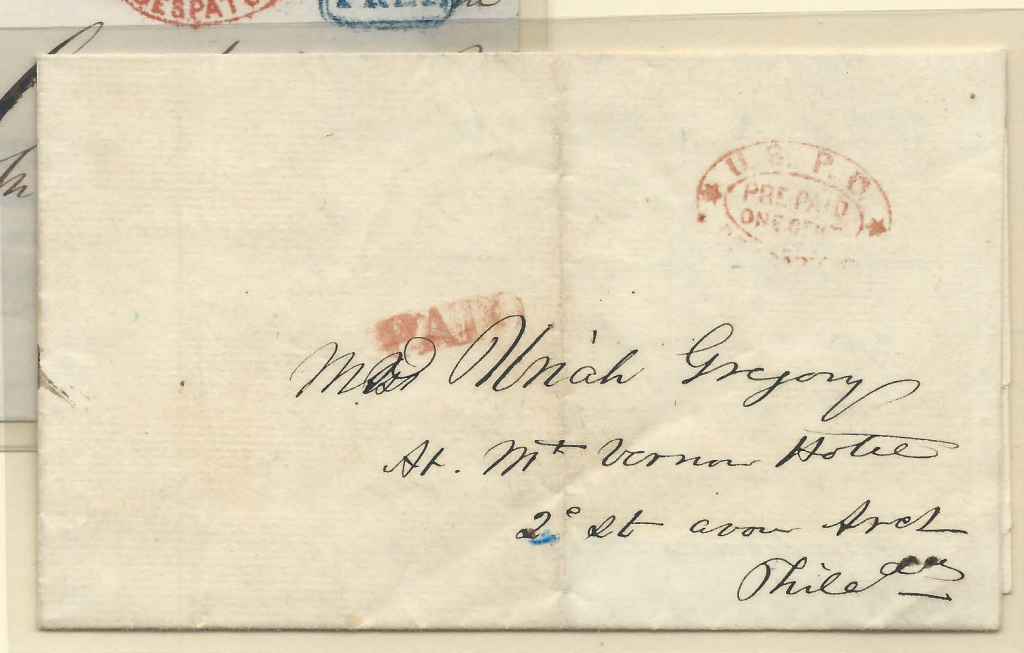 DESPATC
FREE
U. S. P. O
PRE PAID
ONE CENT
PAID
Uriah Gregory
At. Mt Vernon Hotel
2d St avove Arch
Philada